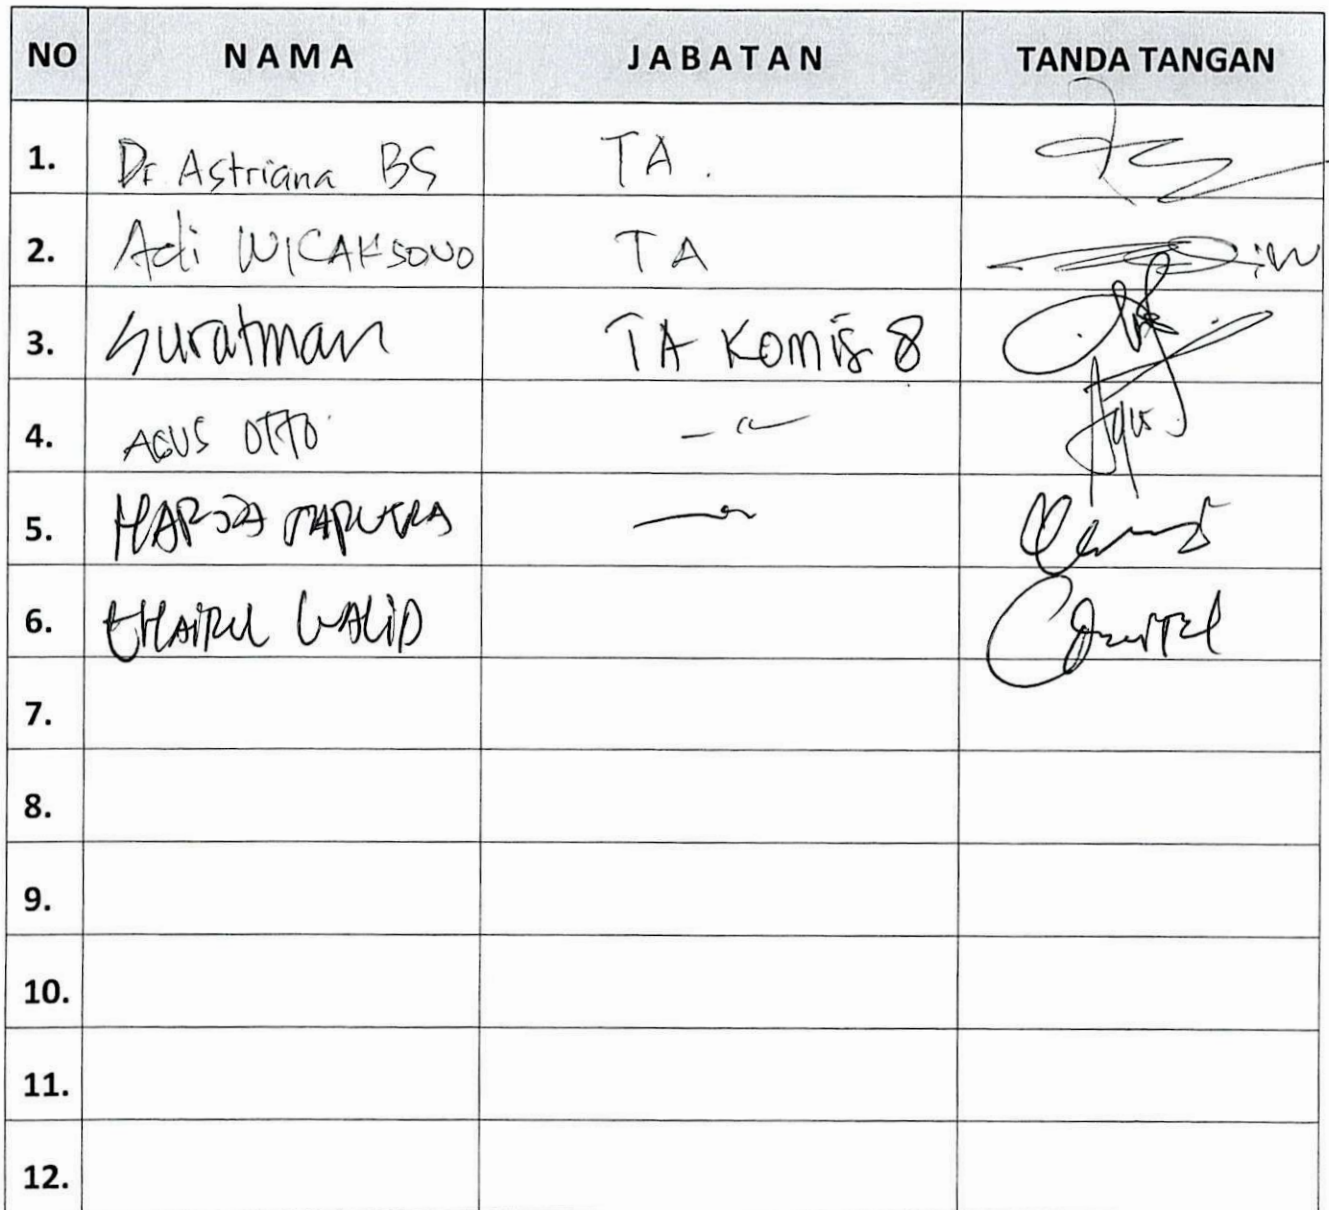 NO NAMA JABATAN TANDA TANGAN
1. Dr Astriana BS TA.
2. Adi WICAKSONO TA
3. Suratman TA Komisi 8
4. AGUS OTTO
5.
6. WALID
7.
8.
9.
10.
11.
12.